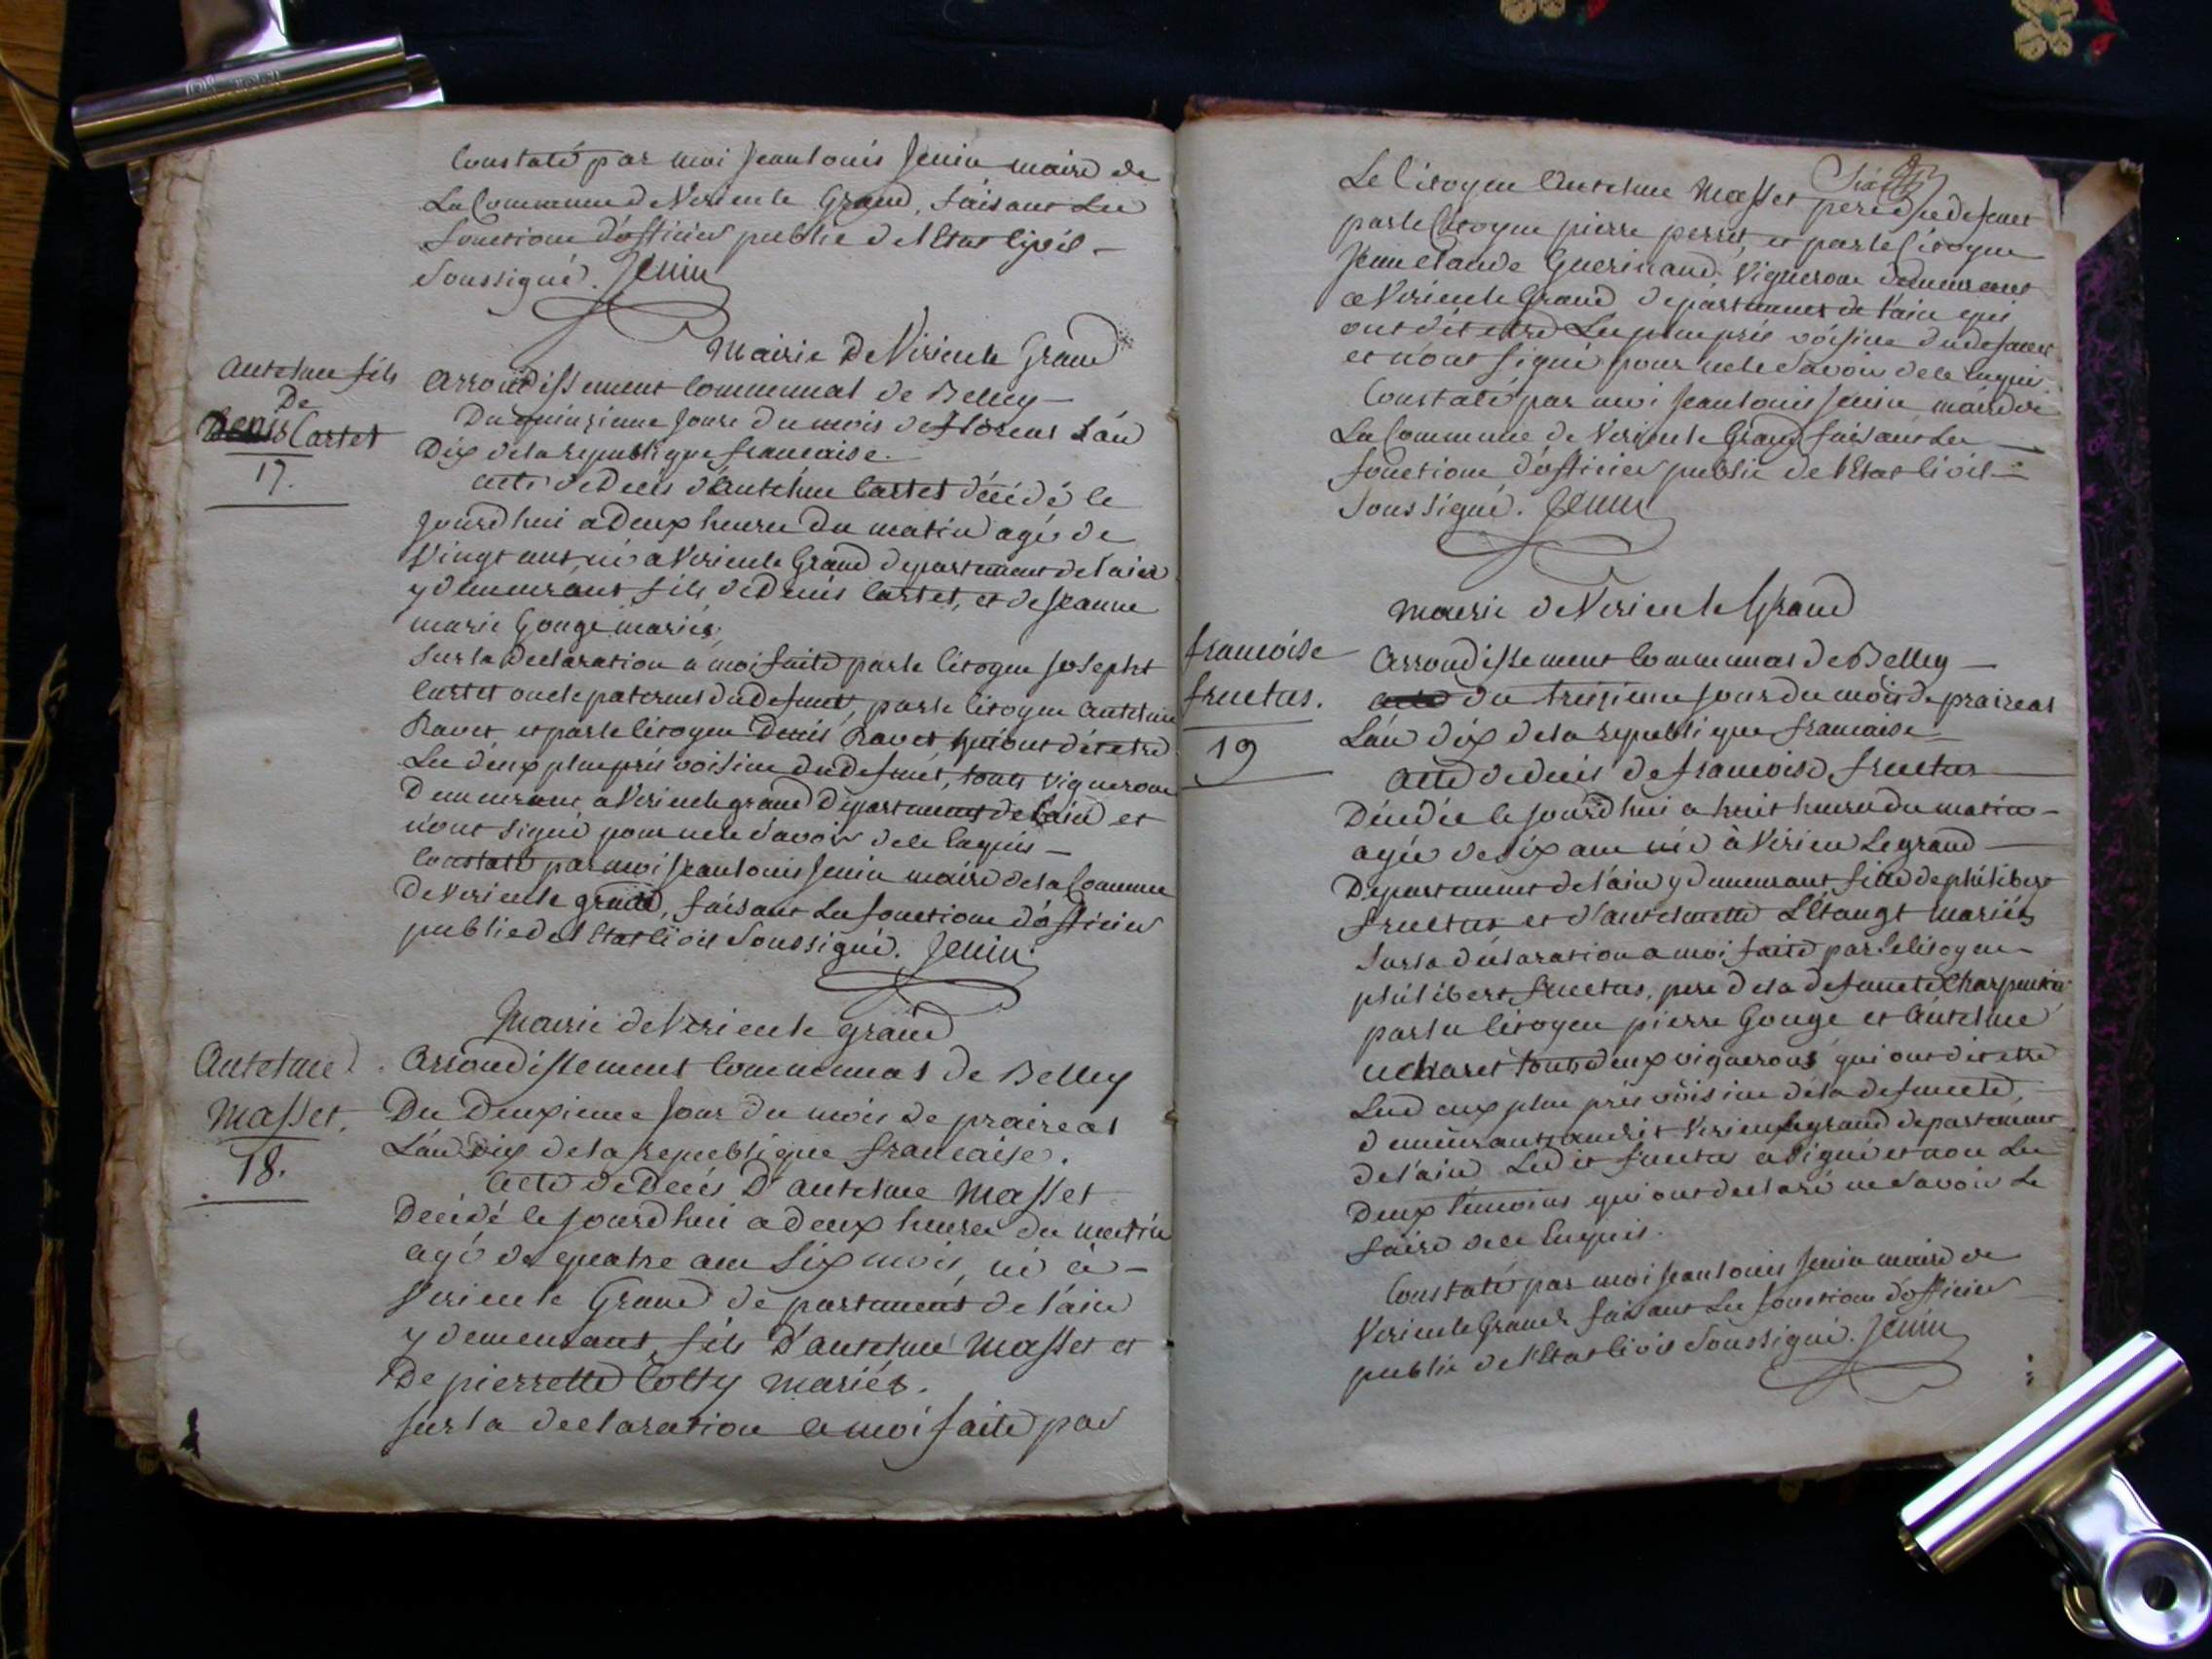 Constaté par moi Jean Louis Jenin maire de
La Commune de Virieu le Grand, faisant Les
fonctions d'officier public de l'Etat Civil –
Soussigné. Jenin
Mairie De Virieu le Grand
Antelme fils
De
Denis Cartet
17.
Arrondissement Communal de Belley –
Du quinzieme Jour du mois de floreal L'an
Dix de la republique francaise.
Acte de Decés d'Antelme Cartet décédé le
Jourd'hui a Deux heures Du matin agé de
Vingt ans, né a Virieu le Grand departement de l'ain
y demeurant fils de Denis Cartet, et de Jeanne
marie Gouge mariés,
Sur la Declaration a moi faite par le Citoyen Josepht
Cartet oncle paternel du Defunt, par le Citoyen Antelme
Ravet et par le Citoyen Denis Ravet, qui ont dit etre
Les deux plus prés voisins du Defunt, touts Vignerons
Demeurant a Virieu le grand Departement de l'ain et
n'ont signé pour ne le savoir de ce Enquis –
Constaté par moi Jean Louis Jenin maire de la Commune
De Virieu le grand, faisant Les fonctions d'officier
public de l'Etat Civil Soussigné. Jenin
Mairie de Virieu le grand
Antelme
Masset.
18.
Arrondissement Communal de Belley
Du Deuxieme Jour du mois de praireal
L'an dix de la republique francaise.
Acte de Decés D'antelme Masset
Decédé le Jourd'hui a deux heures du matin
agé de quatre ans Six mois, né à –
Virieu le Grand departement de l'ain
y demeurant, fils D'antelme Masset et
De pierrette Colty mariés.
Sur la declaration a moi faite par
Le Citoyen Antelme Masset pere du defunt
par le Citoyen pierre perret, et par le Citoyen
Jean Claude Guerinand. Vignerons demeurant
a Virieu le Grand departement de l'ain qui
ont dit etre Les plus prés voisins du defunt
et n'ont signé pour ne le Savoir de ce Enquis
Constaté par moi Jean Louis Jenin maire de
La Commune de Virieu le Grand faisant Les
fonctions d'officier public de l'Etat Civil –
Soussigné. Jenin
Mairie de Virieu le Grand
francoise
fructus.
19
Arrondissement Communal de Belley –
du treizieme Jour du mois de praireal
L'an dix de la republique francaise
Acte de decés de francoise fructus
Décédée le Jourd'hui a huit heures du matin –
agée de Six ans née à Virieu Le grand
Departement de l'ain y demeurant fille de philibert
fructus et d'antelmette L'Etangt mariés
Sur la déclaration a moi faite par le Citoyen
philibert fructus, pere de la defuncte Charpentier
par le Citoyen pierre Gouge et Antelme
ucharet touts deux vignerons qui ont dit etre
Les deux plus prés voisins de la defuncte,
demeurant audit Virieu le grand departement
de l'ain Ledit fructus a Signé et non Les
Deux temoins qui ont declaré ne Savoir Le
faire de ce Enquis.
Constaté par moi Jean Louis Jenin maire de
Virieu le Grand faisant Les fonctions d'officier
public de l'Etat Civil Soussigné. Jenin